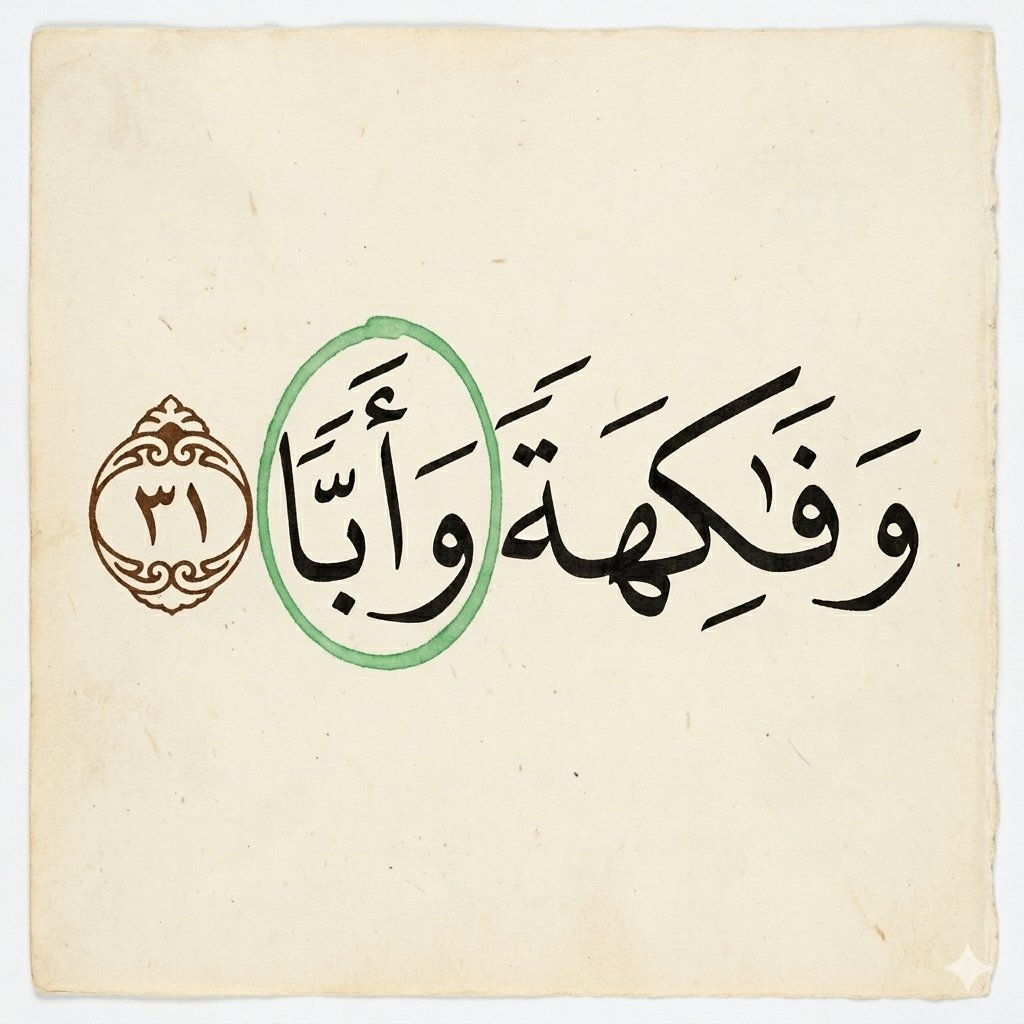 وَفَـٰكِهَةً وَأَبًّا ٣١